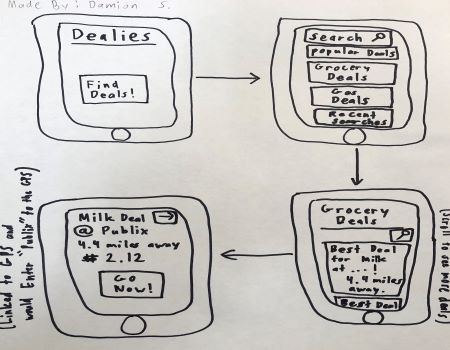 Made By: Damian S.
Dealies
Find
Deals!
Search
popular Deals
Grocery
Deals
Gas
Deals
Recent
searches
Grocery
Deals
Best Deal
for milk
at ... !
4.4 miles
away.
Best Deal
(Scroll to see more deals)
Milk Deal →
@ Publix
4.4 miles away
# 2.12
Go
Now!
(Linked to GPS and
would Enter "Publix" to the GPS)